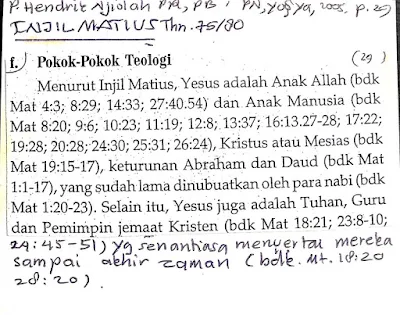 P. Hendrik Njiolah Pr, PB, PN, Yogya, 2008, p. 29
INJIL MATIUS Thn. 75/80
f. Pokok-Pokok Teologi (29)
Menurut Injil Matius, Yesus adalah Anak Allah (bdk
Mat 4:3; 8:29; 14:33; 27:40.54) dan Anak Manusia (bdk
Mat 8:20; 9:6; 10:23; 11:19; 12:8; 13:37; 16:13.27-28; 17:22;
19:28; 20:28; 24:30; 25:31; 26:24), Kristus atau Mesias (bdk
Mat 19:15-17), keturunan Abraham dan Daud (bdk Mat
1:1-17), yang sudah lama dinubuatkan oleh para nabi (bdk
Mat 1:20-23). Selain itu, Yesus juga adalah Tuhan, Guru
dan Pemimpin jemaat Kristen (bdk Mat 18:21; 23:8-10;
24:45-51) yg senantiasa menyertai mereka
sampai akhir zaman (bdk. Mt. 18:20
28:20).